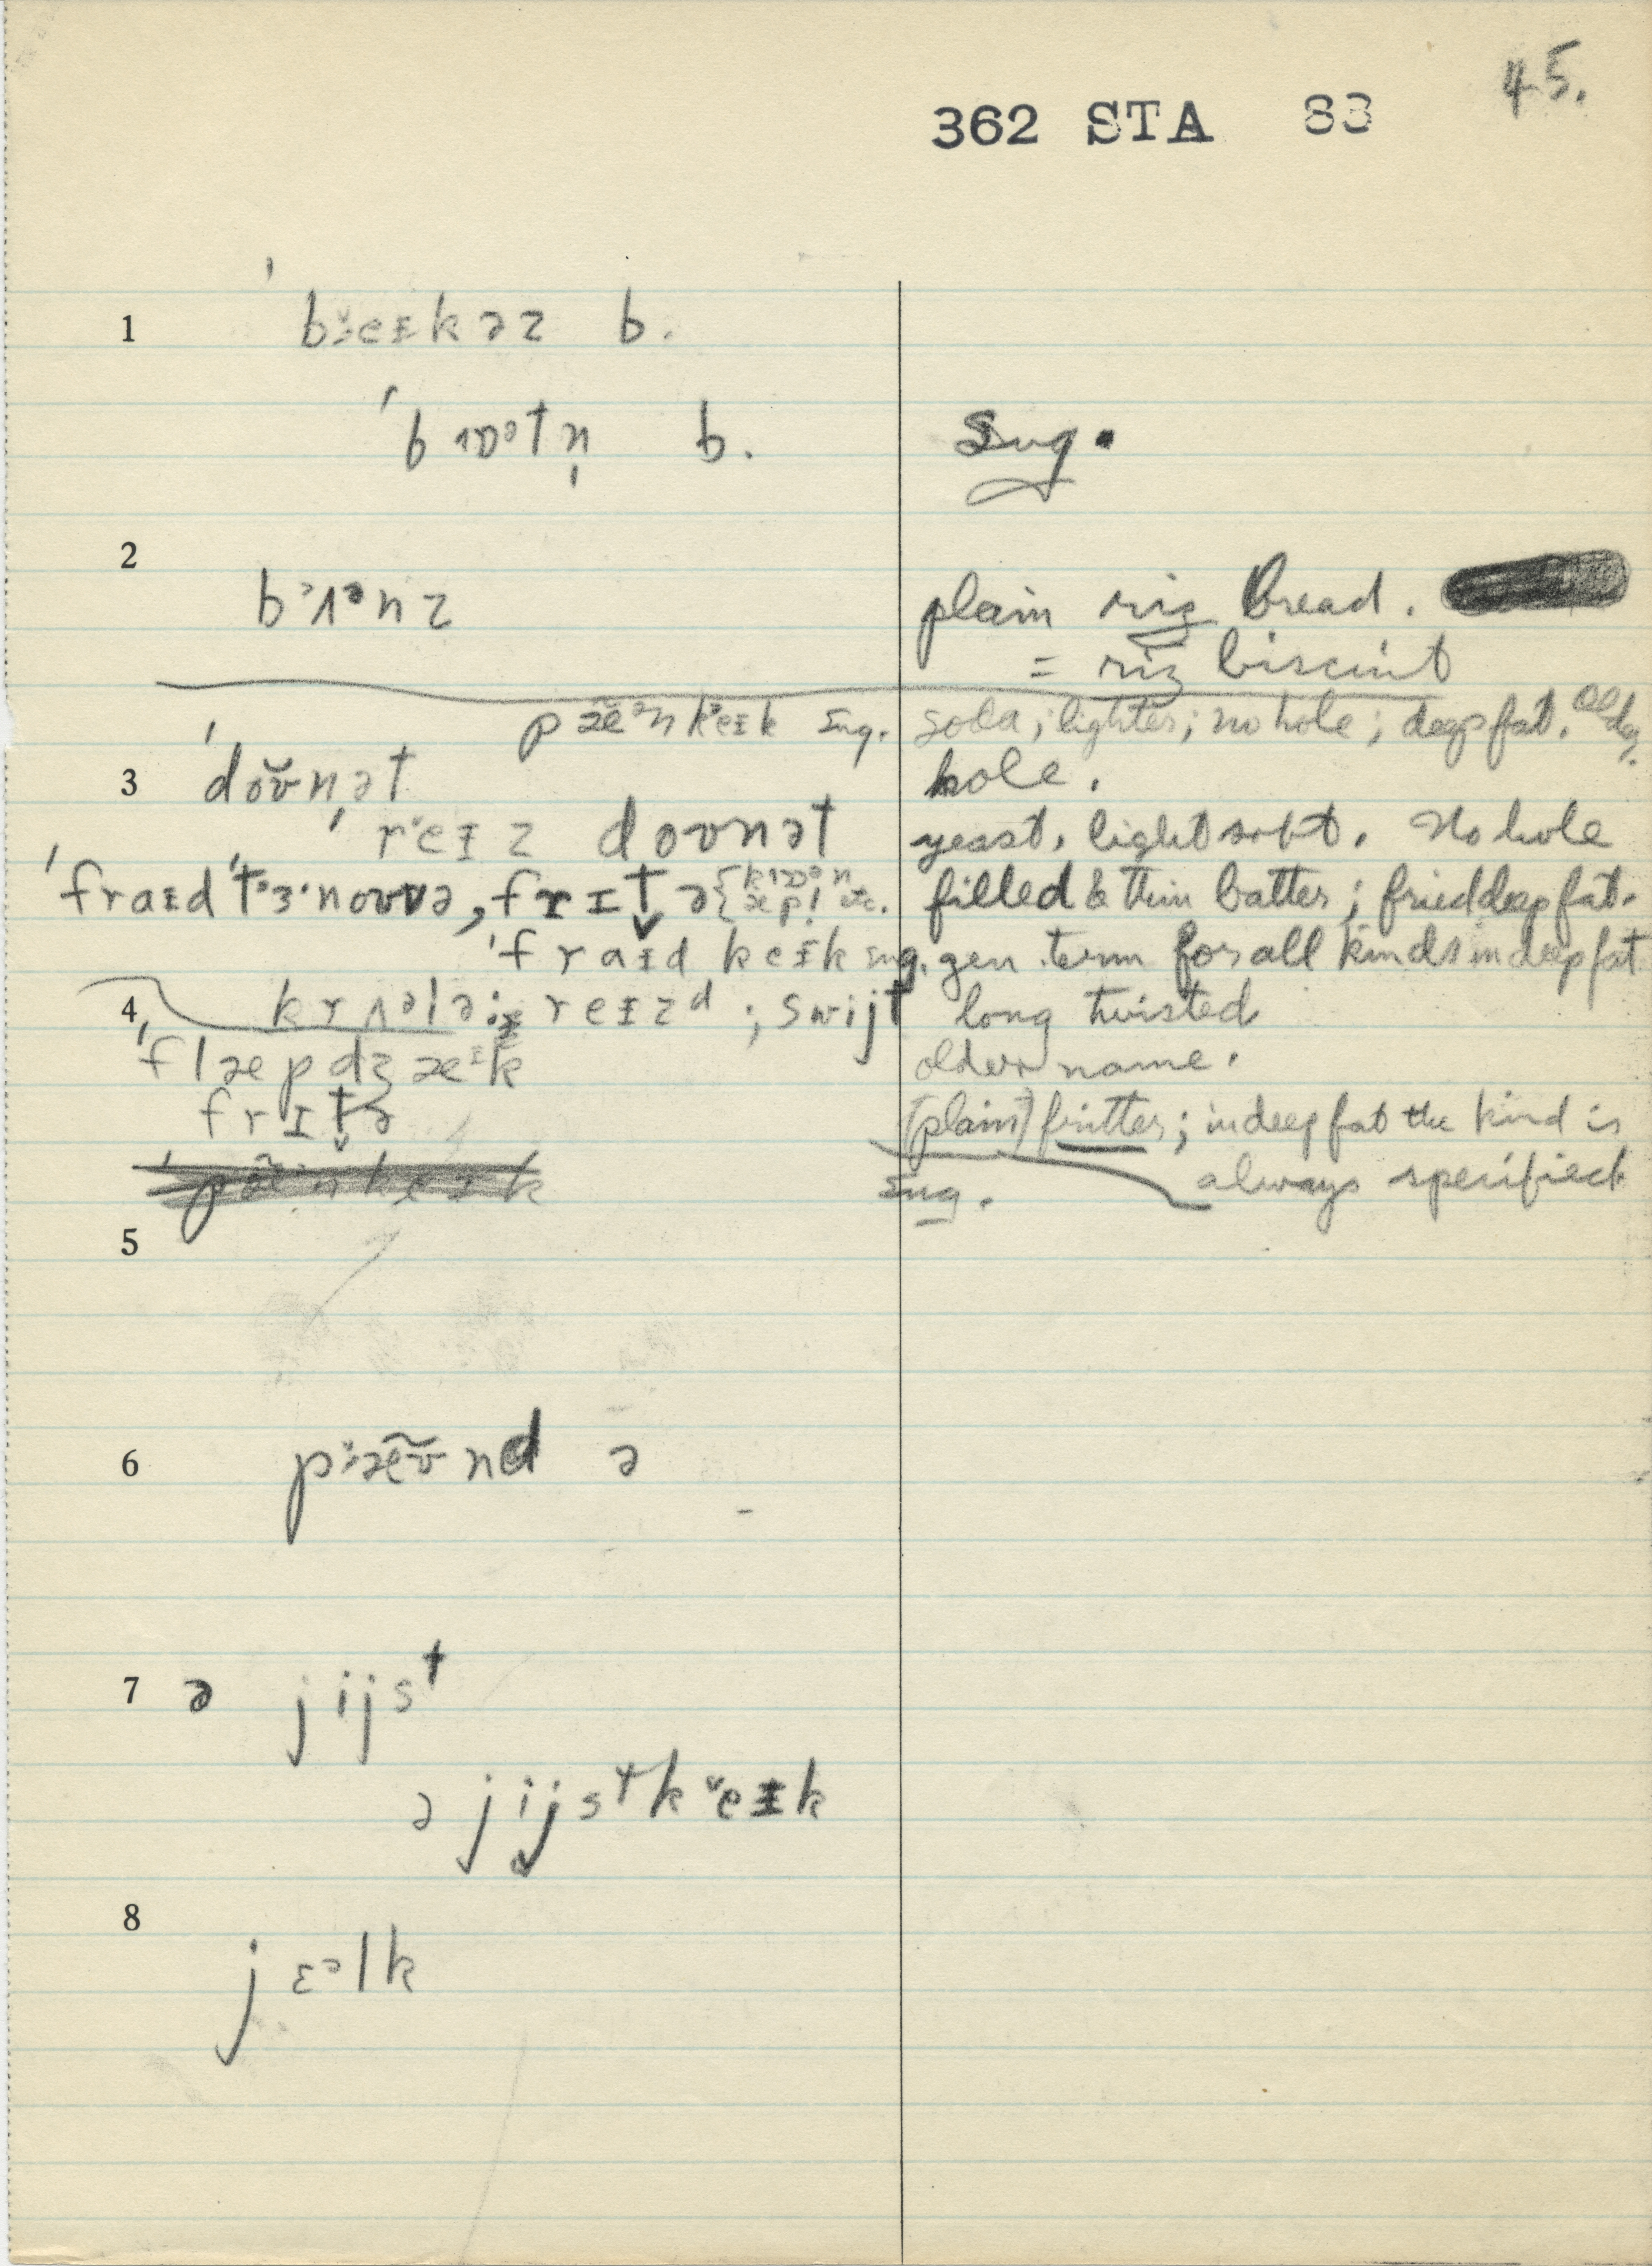 45.
362 STA 83
1 ˈbɜeɪkəz b.
ˈbɹɒᵊtn̩ b. Sug.
2
bᵊʌᵊnz plain riz bread.
= riz biscuit
pæ̃ᵊnkeɪk sug. soda; lighter; no hole; deep fat.
3 ˈdoʊ̆nət hole.
ˈreɪz doʊnət yeast, light soft. No hole
ˈfraɪd ˈtɜ·noʊvə, frɪt̬ə filled & thin batter; fried deep fat.
ˈfraɪd keɪk sug. gen. term for all kinds in deep fat
4 krʌᵊlə reɪzᵈ; swijt long twisted
ˈflæpdʒæᶦk older name.
frɪt̬ə (plain) fritter; in deep fat the kind is
sug. always specified
5
6 pæ̃ʊnd ə
7 ə jijsᵗ
ə jijsᵗkeɪk
8
jɛᵊlk